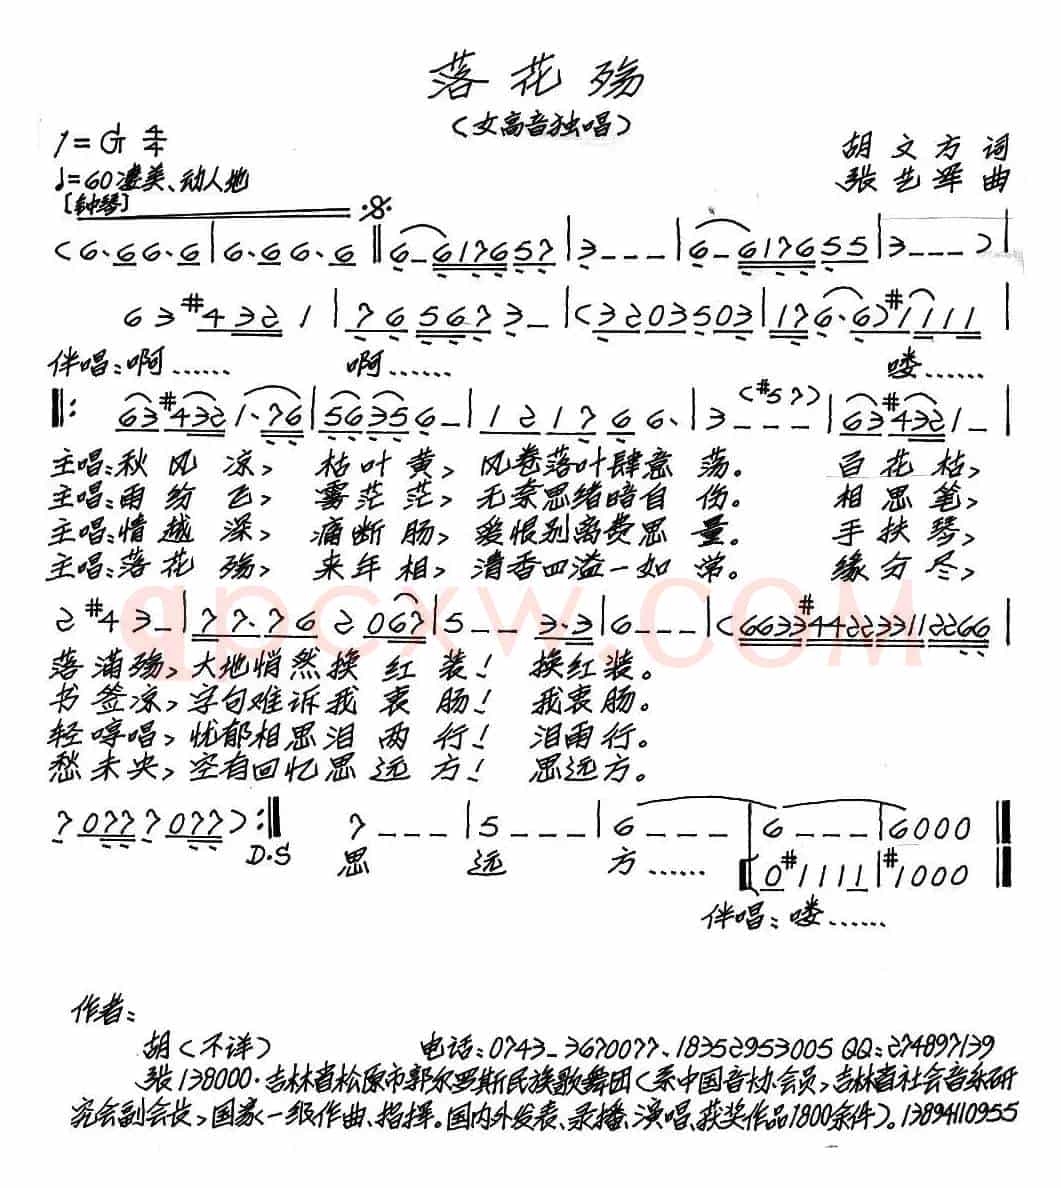 落花殇
（女高音独唱）
1=G 4/4
胡文方 词
♩=60 凄美、动人地
张艺军 曲
[钟琴]
(6·66·6|6·66·6‖6-617657|3---|6-617655|3---)|
63#4321|765673-|(3203503|176·6)#1111|
伴唱:啊…… 啊…… 喽……
‖:63#4321·76|56356-|121766·|3---(#57)|63#4321-|
主唱:秋风凉, 枯叶黄, 风卷落叶肆意荡。 百花枯,
主唱:雨纷飞, 雾茫茫, 无奈思绪暗自伤。 相思笔,
主唱:情越深, 痛断肠, 爱恨别离费思量。 手扶琴,
主唱:落花殇, 来年相, 清香四溢一如常。 缘分尽,
2#43-|77·762067|5--3·3|6---|(6633#442233112266|
落满殇, 大地悄然换红装! 换红装。
书签凉, 字句难诉我衷肠! 我衷肠。
轻哼唱, 忧郁相思泪两行! 泪雨行。
愁未央, 空有回忆思远方! 思远方。
70777077):‖ 7---|5---|6---|6---|6000‖
D.S 思 远 方……
0#1111|#1000‖
伴唱:喽……
作者:
胡(不详) 电话:0743-3670077、18352953005 QQ:274897139
张138000·吉林省松原市郭尔罗斯民族歌舞团(系中国音协会员,吉林省社会音乐研
究会副会长,国家一级作曲、指挥。国内外发表、录播、演唱、获奖作品1800余件)。13894110955
qpcxw.com